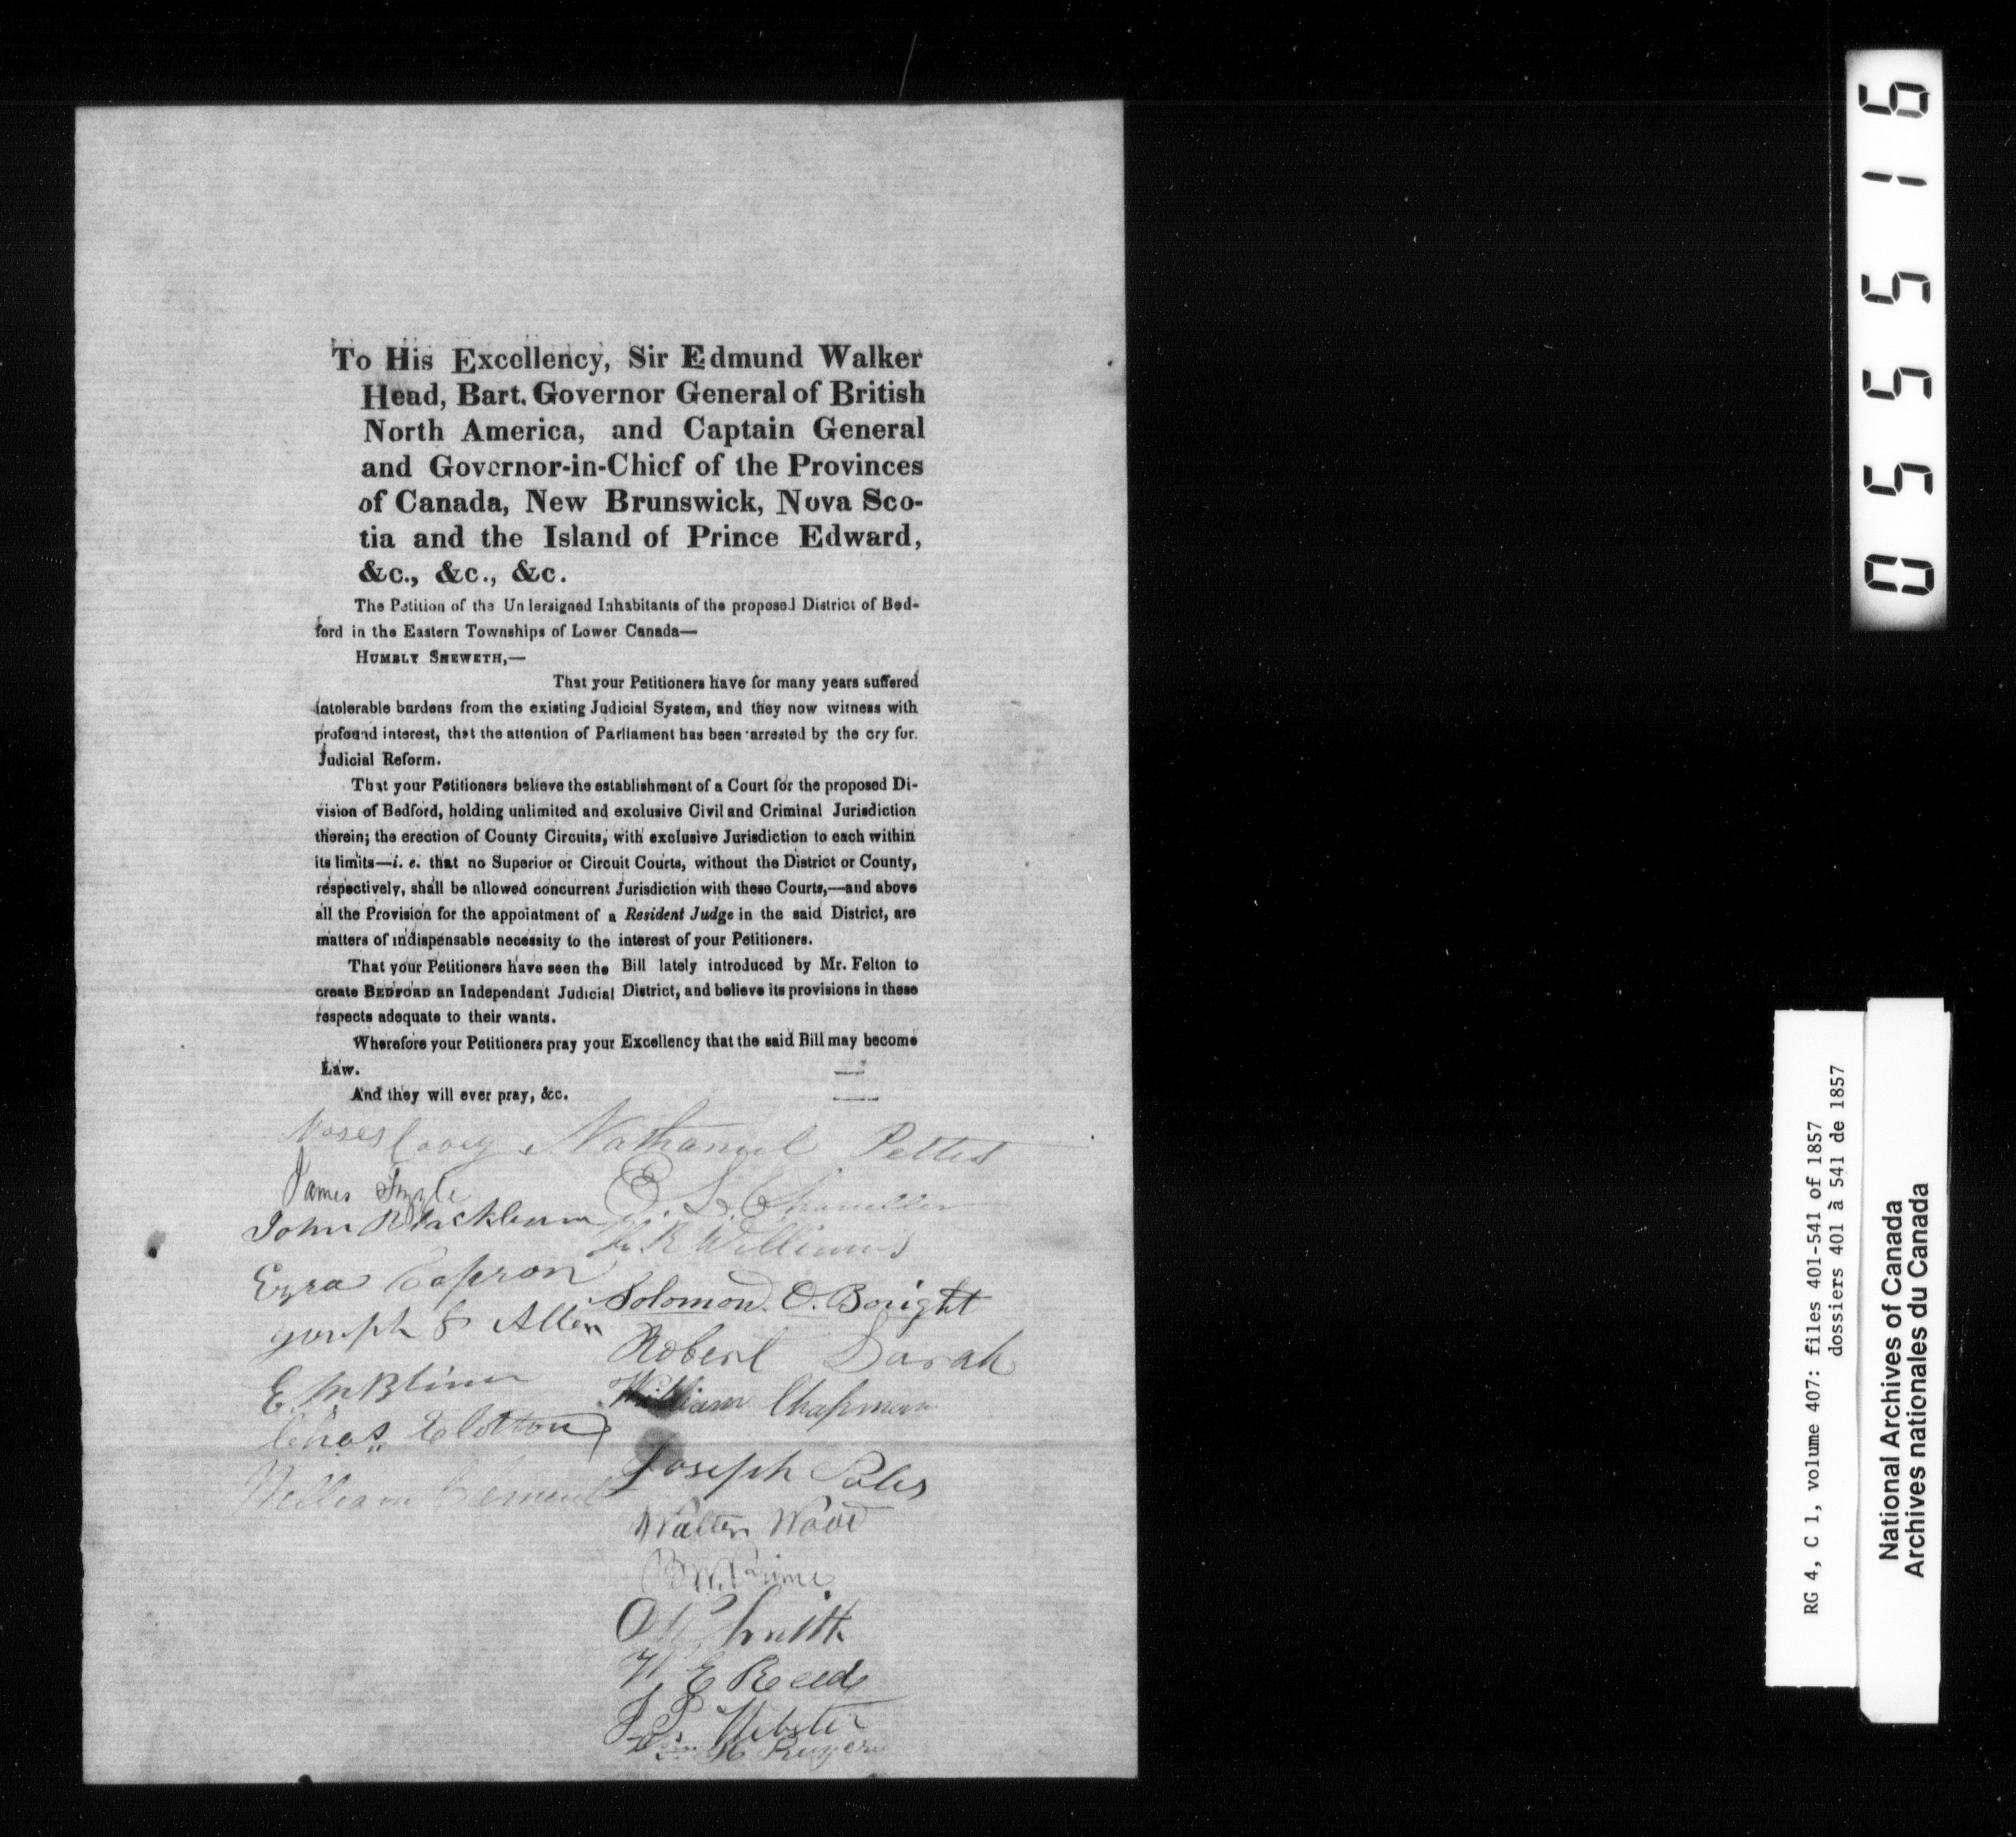 To His Excellency, Sir Edmund Walker
Head, Bart. Governor General of British
North America, and Captain General
and Governor-in-Chief of the Provinces
of Canada, New Brunswick, Nova Sco-
tia and the Island of Prince Edward,
&c., &c., &c.
The Petition of the Undersigned Inhabitants of the proposed District of Bed-
ford in the Eastern Townships of Lower Canada—
HUMBLY SHEWETH,—
That your Petitioners have for many years suffered
intolerable burdens from the existing Judicial System, and they now witness with
profound interest, that the attention of Parliament has been arrested by the cry for
Judicial Reform.
That your Petitioners believe the establishment of a Court for the proposed Di-
vision of Bedford, holding unlimited and exclusive Civil and Criminal Jurisdiction
therein; the erection of County Circuits, with exclusive Jurisdiction to each within
its limits—i. e. that no Superior or Circuit Courts, without the District or County,
respectively, shall be allowed concurrent Jurisdiction with these Courts,—and above
all the Provision for the appointment of a Resident Judge in the said District, are
matters of indispensable necessity to the interest of your Petitioners.
That your Petitioners have seen the Bill lately introduced by Mr. Felton to
create BEDFORD an Independent Judicial District, and believe its provisions in these
respects adequate to their wants.
Wherefore your Petitioners pray your Excellency that the said Bill may become
Law.
And they will ever pray, &c.
Moses
James
John Blackburn
Ezra Capron
Joseph Allen
E.
Chas
William Clement
Nathaniel Pettes
E. L. Chandler
R Williams
Solomon. O. Bright
Robert Darah
William Chapman
Joseph
Walter Wood
Smith
E Reed
Webster
055516
RG 4, C 1, volume 407: files 401-541 of 1857
dossiers 401 à 541 de 1857
National Archives of Canada
Archives nationales du Canada